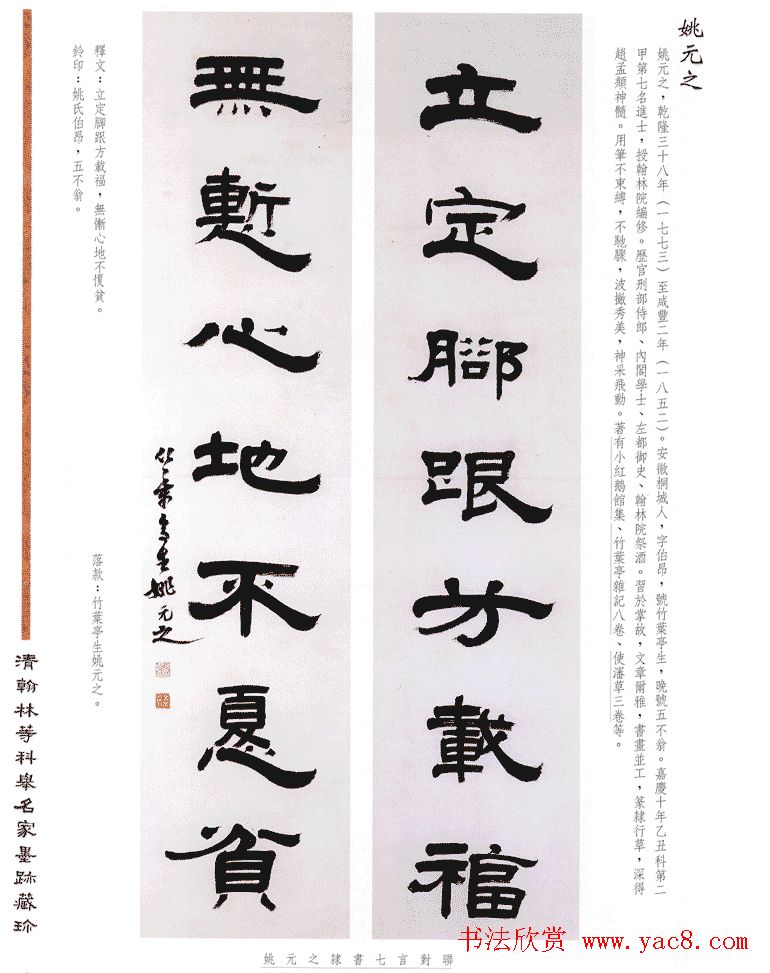 姚元之
姚元之，乾隆三十八年（一七七三）至咸豐二年（一八五二）。安徽桐城人，字伯昂，號竹葉亭生，晚號五不翁。嘉慶十年乙丑科第二
甲第七名進士，授翰林院編修。歷官刑部侍郎、內閣學士、左都御史、翰林院祭酒。習於掌故，文章爾雅，書畫並工，篆隸行草，深得
趙孟頫神髓。用筆不束縛，不馳驟，波撇秀美，神采飛動。著有小紅鵝館集、竹葉亭雜記八卷、使瀋草三卷等。
立定腳跟方載福
無慙心地不憂貧
竹葉亭生姚元之
釋文：立定腳跟方載福，無慚心地不憂貧。
落款：竹葉亭生姚元之。
鈐印：姚氏伯昂，五不翁。
清翰林等科舉名家墨跡藏珍
姚元之隸書七言對聯
书法欣赏 www.yac8.com